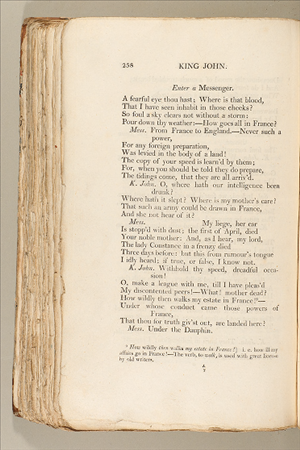 258 KING JOHN.
Enter a Messenger.
A fearful eye thou hast; Where is that blood,
That I have seen inhabit in those cheeks?
So foul a sky clears not without a storm:
Pour down thy weather:—How goes all in France?
Mess. From France to England.—Never such a
power,
For any foreign preparation,
Was levied in the body of a land!
The copy of your speed is learn'd by them;
For, when you should be told they do prepare,
The tidings come, that they are all arriv'd.
K. John. O, where hath our intelligence been
drunk?
Where hath it slept? Where is my mother's care?
That such an army could be drawn in France,
And she not hear of it?
Mess. My liege, her ear
Is stopp'd with dust; the first of April, died
Your noble mother: And, as I hear, my lord,
The lady Constance in a frenzy died
Three days before: but this from rumour's tongue
I idly heard; if true, or false, I know not.
K. John. Withhold thy speed, dreadful occa-
sion!
O, make a league with me, till I have pleas'd
My discontented peers!—What! mother dead?
How wildly then walks my estate in France?—
Under whose conduct came those powers of
France,
That thou for truth giv'st out, are landed here?
Mess. Under the Dauphin.
How wildly then walks my estate in France?] i. e. how ill my
affairs go in France!—The verb, to walk, is used with great licence
by old writers.